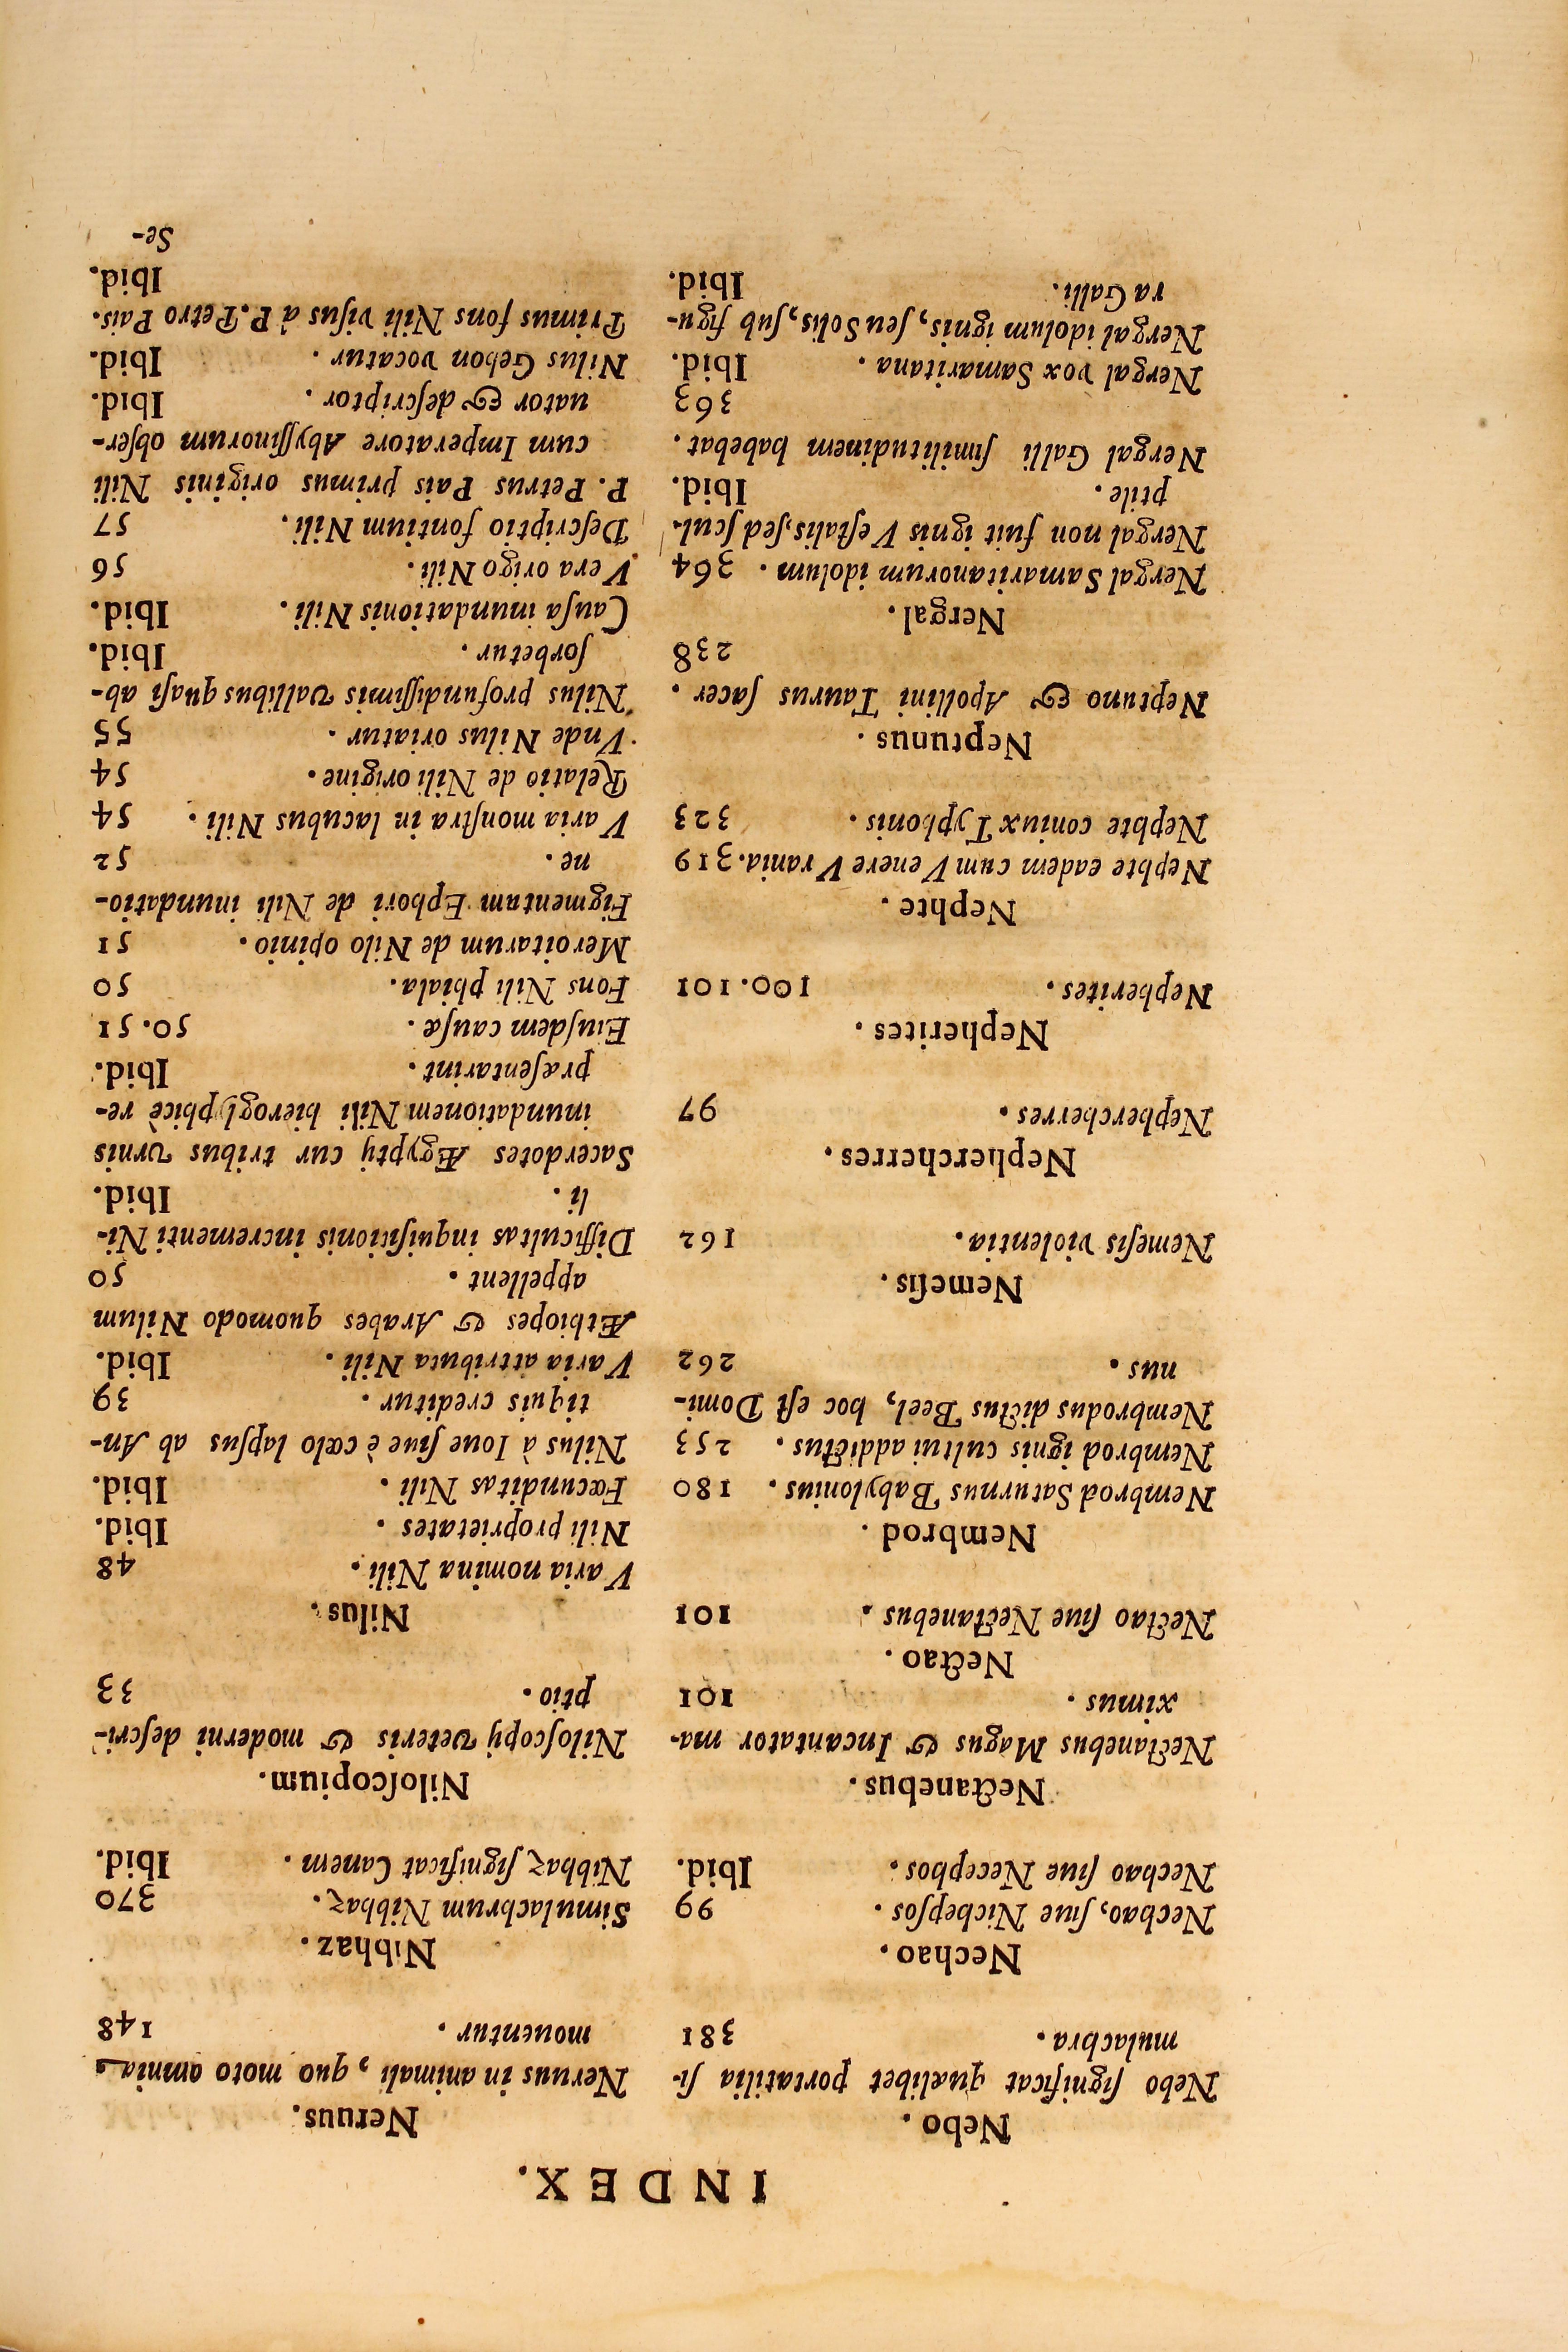 INDEX.
Nebo.
Nebo ſignificat quælibet portatilia ſi-
mulachra. 381
Nechao.
Nechao, ſiue Nichepſos. 99
Nechao ſiue Necephos. Ibid.
Nectanebus.
Nectanebus Magus & Incantator ma-
ximus. 101
Nectao.
Nectao ſiue Nectanebus. 101
Nembrod.
Nembrod Saturnus Babylonius. 180
Nembrod ignis cultui addictus. 253
Nembrodus dictus Beel, hoc eſt Domi-
nus. 262
Nemeſis.
Nemeſis violentia. 162
Nephercherres.
Nephercherres. 97
Nepherites.
Nepherites. 100.101
Nephte.
Nephte eadem cum Venere Vrania. 319
Nephte coniux Typhonis. 323
Neptunus.
Neptuno & Apollini Taurus ſacer.
238
Nergal.
Nergal Samaritanorum idolum. 364
Nergal non fuit ignis Veſtalis, ſed ſcul-
ptile. Ibid.
Nergal Galli ſimilitudinem habebat.
363
Nergal vox Samaritana. Ibid.
Nergal idolum ignis, ſeu Solis, ſub figu-
ra Galli. Ibid.
Neruus.
Neruus in animali, quo moto omnia
mouentur. 148
Nibhaz.
Simulachrum Nibhaz. 370
Nibhaz ſignificat Canem. Ibid.
Niloſcopium.
Niloſcopij veteris & moderni deſcri-
ptio. 33
Nilus.
Varia nomina Nili. 48
Nili proprietates. Ibid.
Fœcunditas Nili. Ibid.
Nilus à Ioue ſiue è cœlo lapſus ab An-
tiquis creditur. 39
Varia attributa Nili. Ibid.
Æthiopes & Arabes quomodo Nilum
appellent. 50
Difficultas inquiſitionis incrementi Ni-
li. Ibid.
Sacerdotes Ægyptij cur tribus vrnis
inundationem Nili hieroglyphicè re-
præſentarint. Ibid.
Eiuſdem cauſæ. 50.51
Fons Nili phiala. 50
Meroitarum de Nilo opinio. 51
Figmentum Ephori de Nili inundatio-
ne. 52
Varia monſtra in lacubus Nili. 54
Relatio de Nili origine. 54
Vnde Nilus oriatur. 55
Nilus profundiſſimis vallibus quaſi ab-
ſorbetur. Ibid.
Cauſa inundationis Nili. Ibid.
Vera origo Nili. 56
Deſcriptio fontium Nili. 57
P. Petrus Pais primus originis Nili
cum Imperatore Abyſſinorum obſer-
uator & deſcriptor. Ibid.
Nilus Gehon vocatur. Ibid.
Primus fons Nili viſus à P. Petro Pais.
Ibid.
Se-